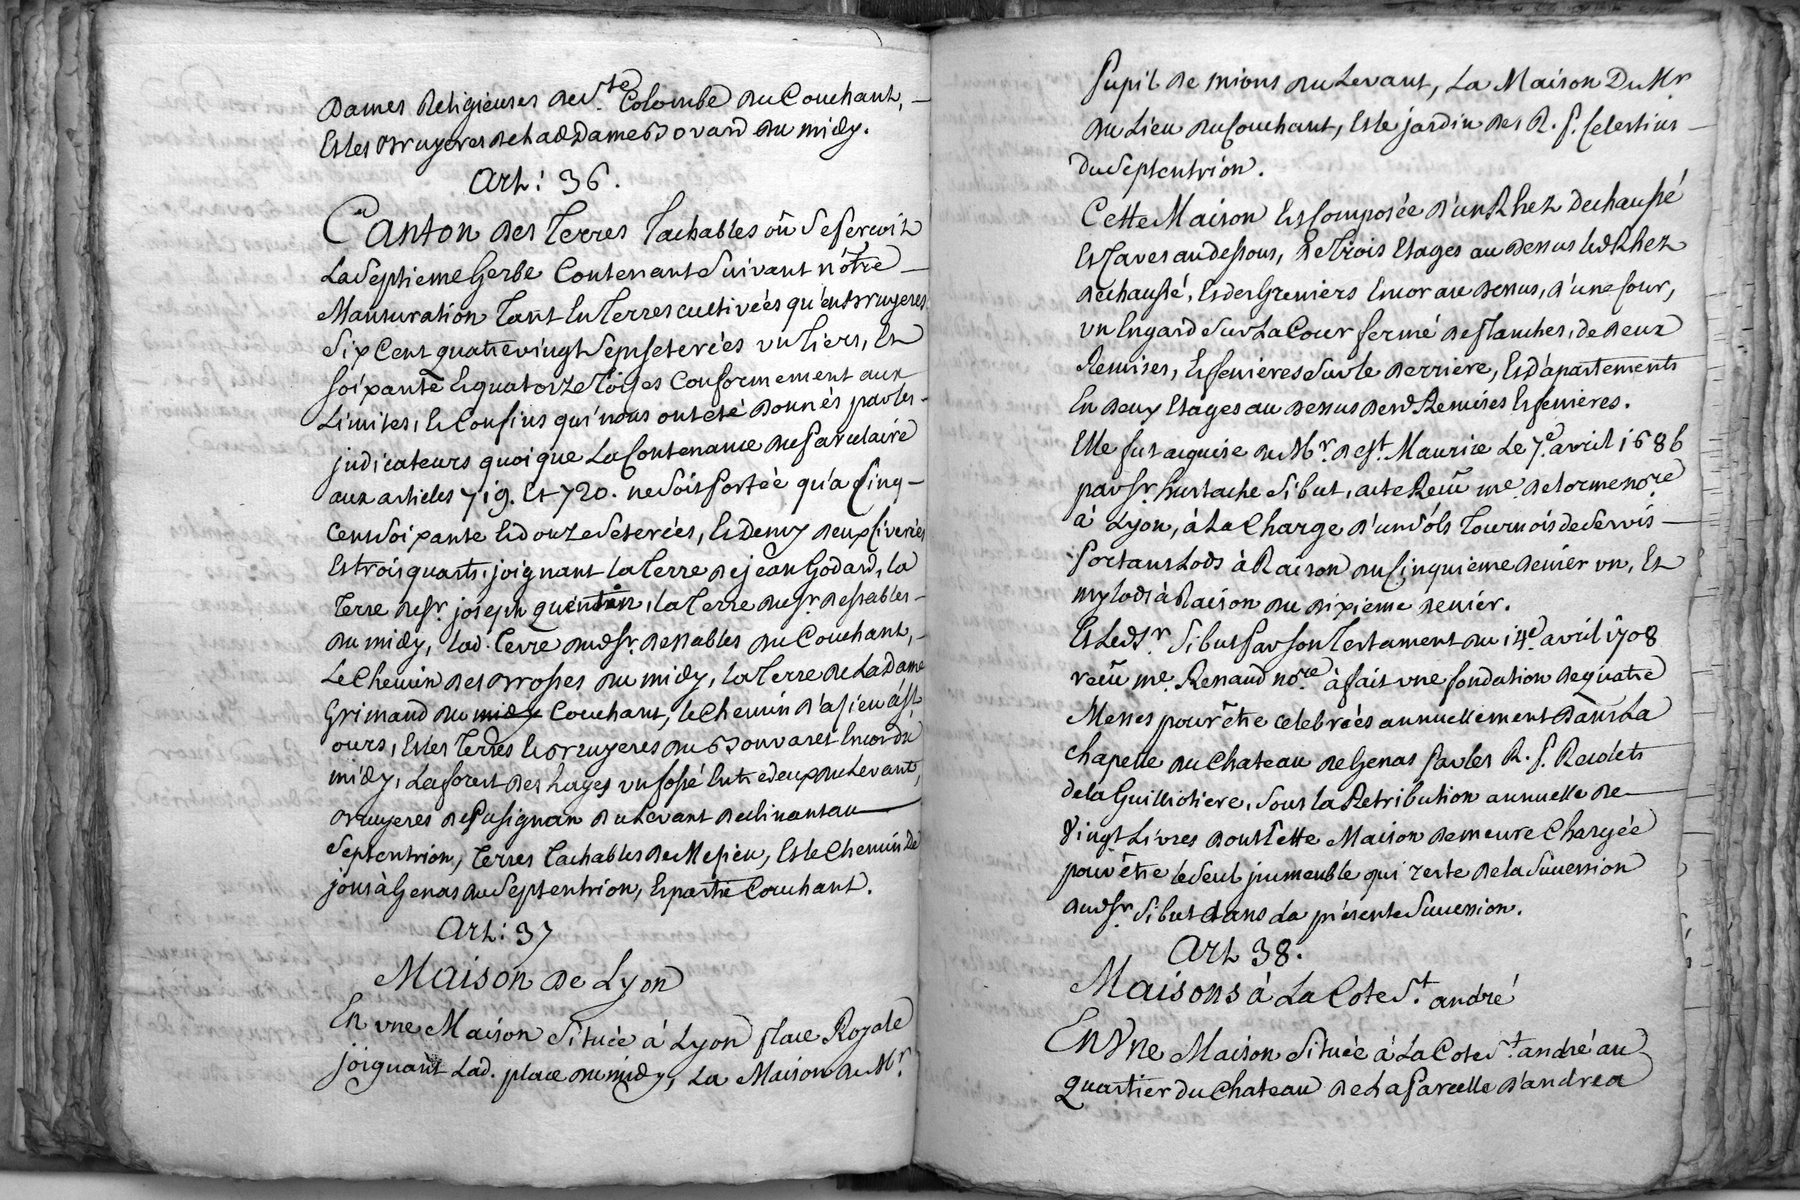 Dames Religieuses de Ste Colombe du Couchant,
Et les Bruyeres de lad Dame Bovard du midy.
Art: 36.
Canton des Terres Tachables où se perçoit
La septieme Gerbe Contenant suivant nôtre
Mansuration Tant En Terres cultiveés qu'en Bruyeres
Six Cent quatre vingt Sept seterées un Tiers, Et
soixante Et quatorze Toises Conformement aux
Limites, Et Confins qui nous ont eté Donnés par les
judicateurs quoique La Contenance du Parculaire
aux articles 719. Et 720. ne soit Portée qu'a Cinq
Cent soixante Et douze seterées, Et Demy deux Civerées
Et trois quarts, joignant la Terre de jean Godard, la
Terre de Sr. joseph quentin, la Terre du Sr. Dessables
du midy, lad. Terre dud Sr. Dessables du Couchant,
Le Chemin des Brosses du midy, la Terre de La Dame
Grimaud du midy Couchant, le Chemin d'azieu à St
ours, Et les Terres Et Bruyeres du Bouvaret Encor du
midy, La forest des hayes un fossé Entre deux du Levant,
Bruyeres de Pusignan du Levant declinant au
Septentrion, Terres Tachables de Mesieu, Et le Chemin De
jons à Genas du Septentrion, Et partie Couchant.
Art: 37
Maison de Lyon
En vne Maison Située à Lyon place Royale
joignant Lad. place du midy, La Maison de Mr.
Pupil de mions du Levant, La Maison Du Mr
du Lieu du Couchant, Et le jardin des R. P. Celestins
du Septentrion.
Cette Maison Est Composée d'un Rhez de chaussé
Et Caves au dessous, de Trois Etages au Dessus dud Rhez
de chaussé, Et des Greniers Encor au Dessus, d'une Cour,
vn Engard sur La Cour fermé de Planches, de deux
Remises, Et fenieres sur le derriere, Et d'apartements
En deux Etages au dessus desd Remises Et fenieres.
Elle fut acquise de Mr. de St. Maurice Le 7e. avril 1686
par Sr. Eustache Sibut, acte Reçu me. Delorme nore.
à Lyon, à La Charge d'un sols Tournois de Servis
Portant Lods à Raison du Cinquieme denier vn, Et
mylods à Raison du dixieme denier.
Et Led Sr. Sibut Par son Testament du 14e. avril 1708
reçu me. Renaud nore à fait vne fondation de quatre
Messes pour être celebreés annuellement Dans La
chapelle du Chateau de Genas Par les R. P. Recolets
de la Guillotiere, sous la Retribution annuelle de
Vingt Livres dont Cette Maison demeure Chargée
pour être le seul jmmeuble qui reste de la Succession
dud Sr. Sibut dans La présente Succession.
Art 38.
Maisons à La Cote St. andré
En Vne Maison Située à La Cote St. andré au
quartier du Chateau de La Parcelle d'andrea